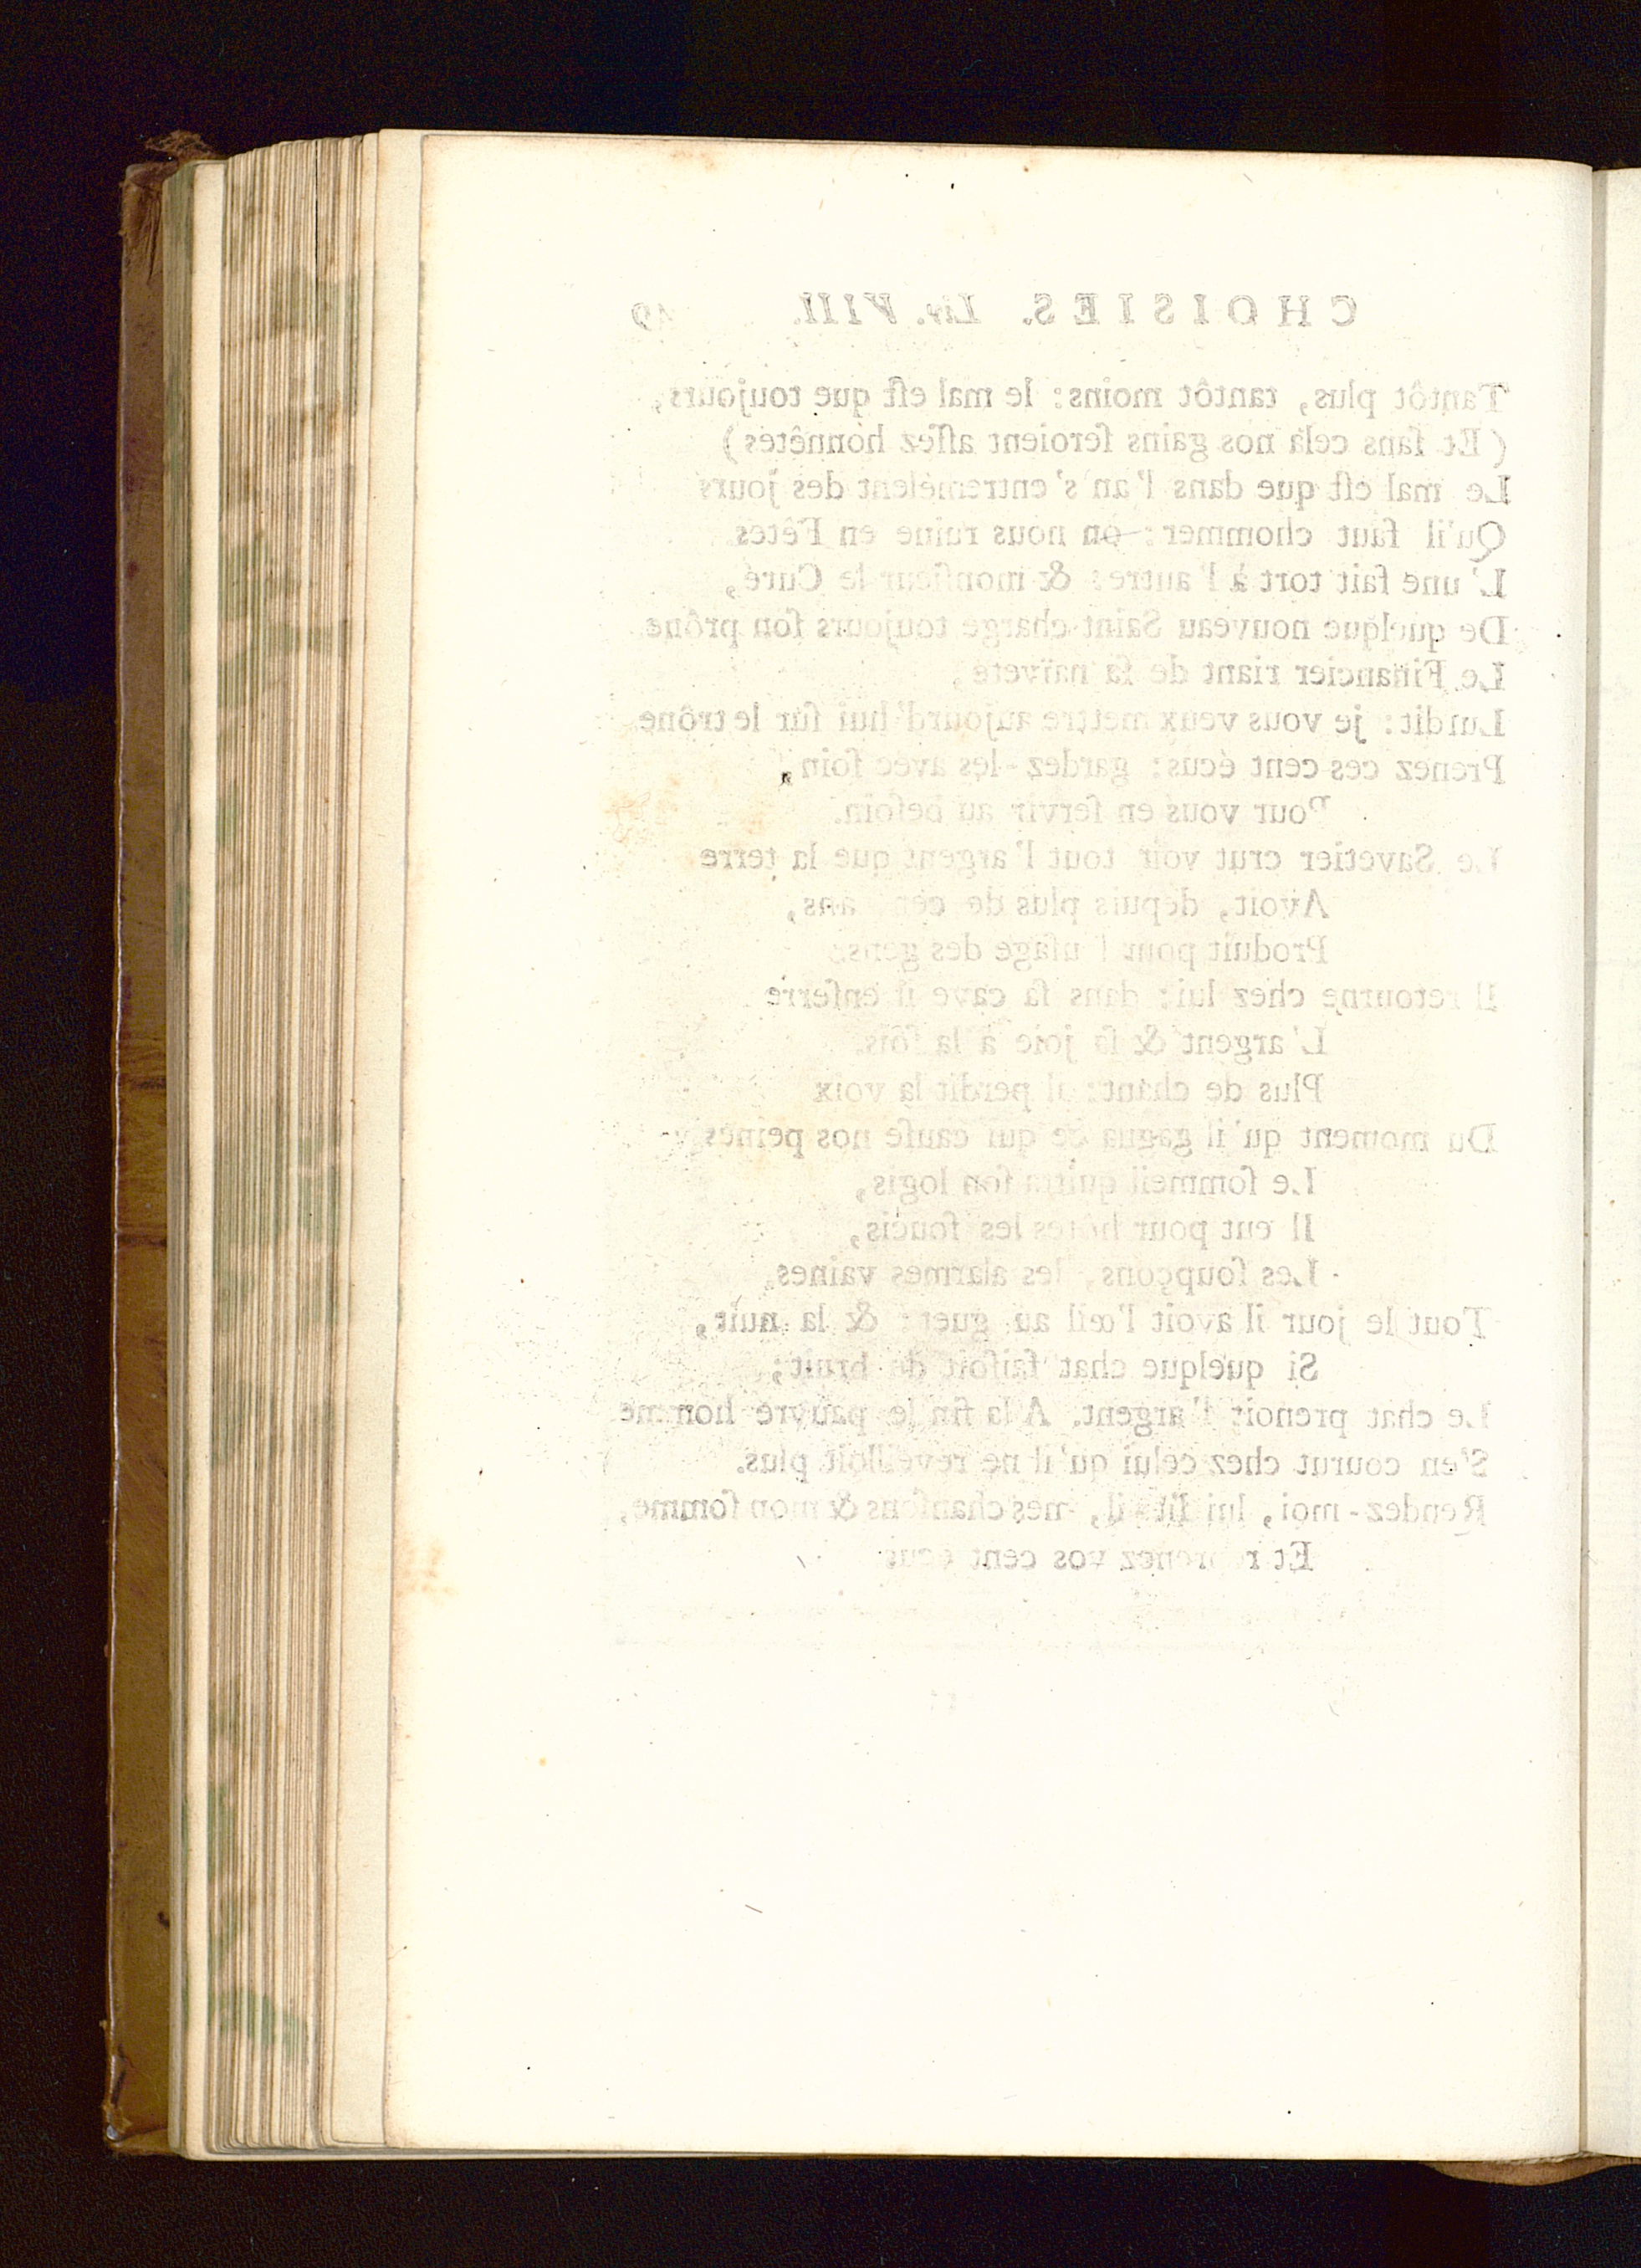 CHOISIES. Liv. VIII. 19
Tantôt plus, tantôt moins: le mal eſt que toujours,
(Et ſans cela nos gains ſeroient aſſez honnêtes)
Le mal eſt que dans l'an s'entremêlent des jours
Qu'il faut chommer: on nous ruine en Fêtes.
L'une fait tort à l'autre: & monſieur le Curé,
De quelque nouveau Saint charge toujours ſon prône.
Le Financier riant de ſa naïveté,
Lui dit: je vous veux mettre aujourd'hui ſur le trône
Prenez ces cent écus: gardez-les avec ſoin,
Pour vous en ſervir au beſoin.
Le Savetier crut voir tout l'argent que la terre
Avoit, depuis plus de cent ans,
Produit pour l'uſage des gens.
Il retourne chez lui: dans ſa cave il enſerre
L'argent & ſa joie à la fois.
Plus de chant: il perdit la voix
Du moment qu'il gagna ce qui cauſe nos peines.
Le ſommeil quitta ſon logis,
Il eut pour hôtes les ſoucis,
Les ſoupçons, les alarmes vaines.
Tout le jour il avoit l'œil au guet: & la nuit,
Si quelque chat faiſoit du bruit;
Le chat prenoit l'argent. A la fin le pauvre homme
S'en courut chez celui qu'il ne reveilloit plus.
Rendez-moi, lui dit-il, mes chanſons & mon ſomme,
Et reprenez vos cent écus